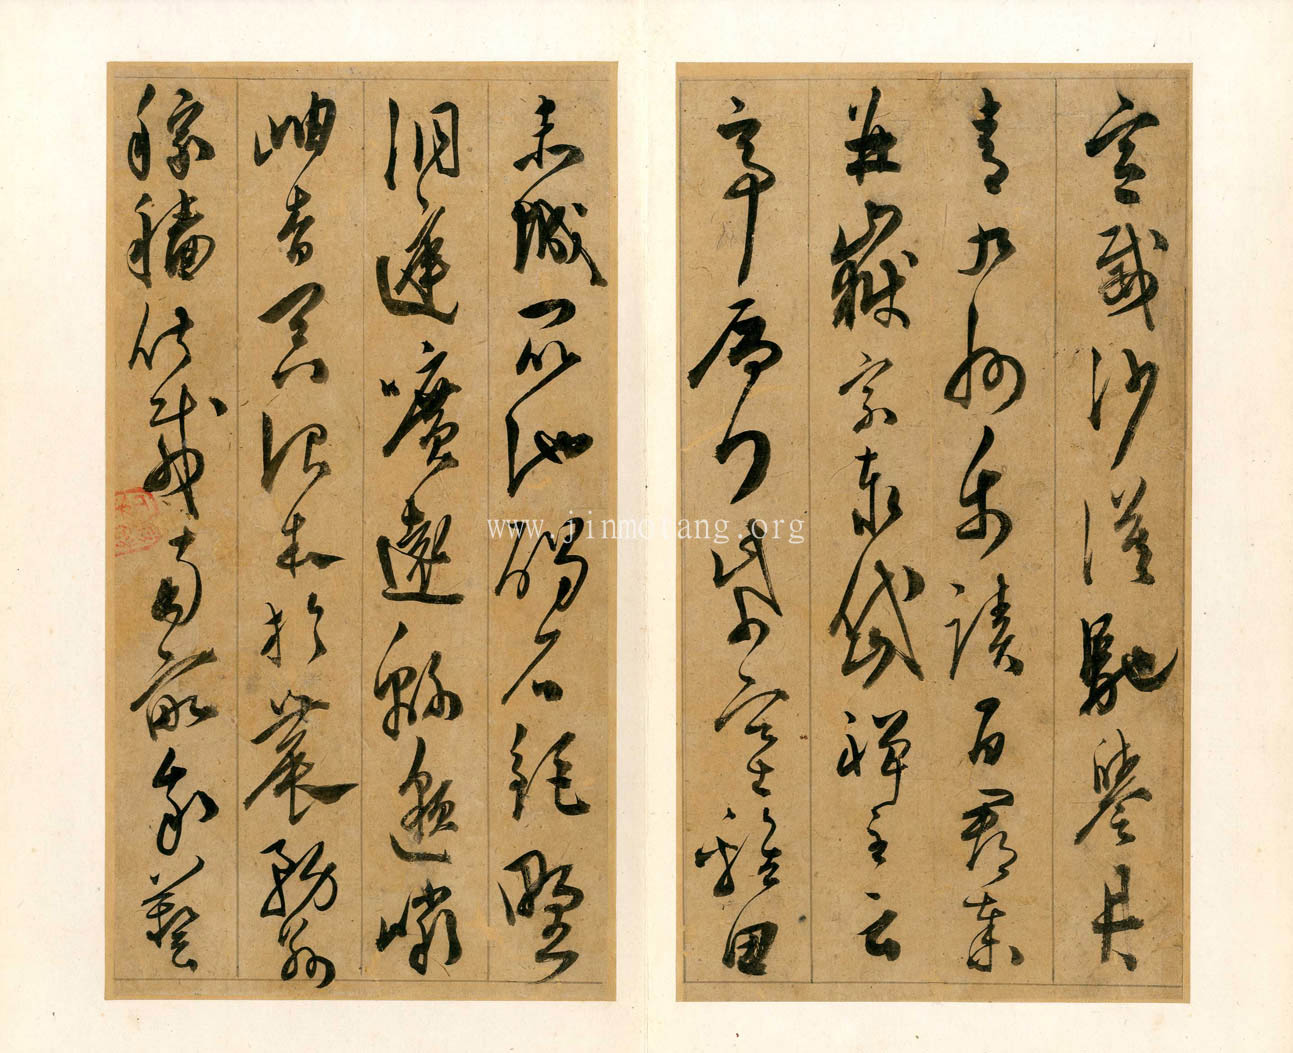 宣威沙漠馳譽丹
青九州禹蹟百郡秦
并嶽宗泰岱禪主云
亭雁門紫塞雞田
赤城昆池碣石鉅野
洞庭曠遠緜邈巖
岫杳冥治本於農務茲
稼穡俶載南畝我藝
www.jinmotang.org